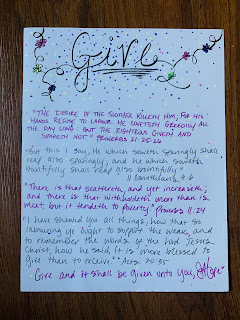 Give
"The desire of the slothful killeth him; for his
hands refuse to labour. He coveteth greedily all
the day long: but the righteous giveth and
spareth not" Proverbs 21:25-26
"But this I say, He which soweth sparingly shall
reap also sparingly; and he which soweth
bountifully shall reap also bountifully"
II Corinthians 9:6
"There is that scattereth, and yet increaseth;
and there is that withholdeth more than is
meet, but it tendeth to poverty" Proverbs 11:24
"I have shewed you all things, how that so
labouring ye ought to support the weak, and
to remember the words of the Lord Jesus
Christ, how he said, it is more blessed to
give than to receive" Acts 20:35
Give and it shall be given unto you,